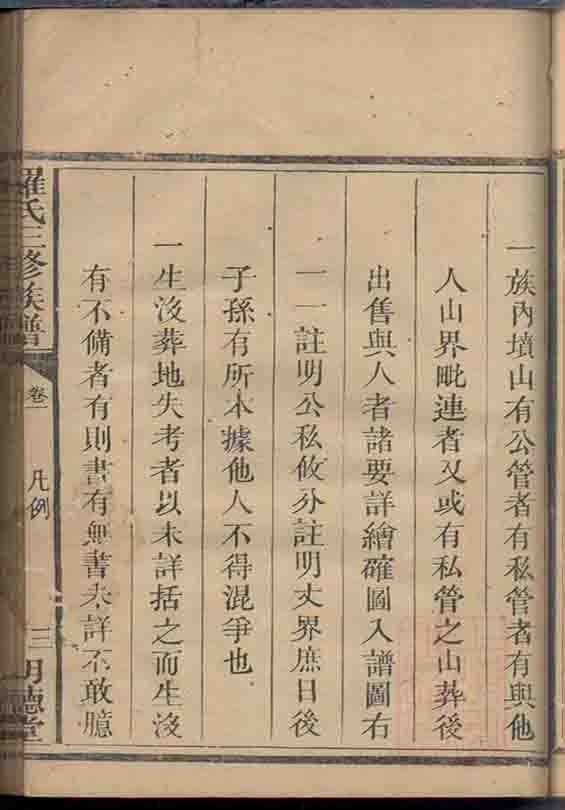 一族內墳山有公管者有私管者有與他
人山界毗連者又或有私管之山葬後
出售與人者諸要詳繪確圖入譜圖右
一一註明公私攸分註明丈界庶日後
子孫有所本據他人不得混爭也
一生沒葬地失考者以未詳括之而生沒
有不備者有則書有無書未詳不敢臆
羅氏三修族譜
卷一
凡例
三
明德堂